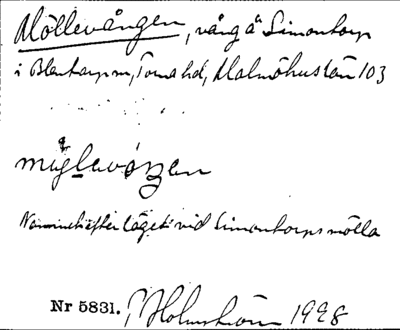 Möllevången, vång å Simontorp
i Blentarp sn, Torna hd, Malmöhus län 103
Namnet efter läget vid Simontorps mölla
Nr 5831. Holmström 1928